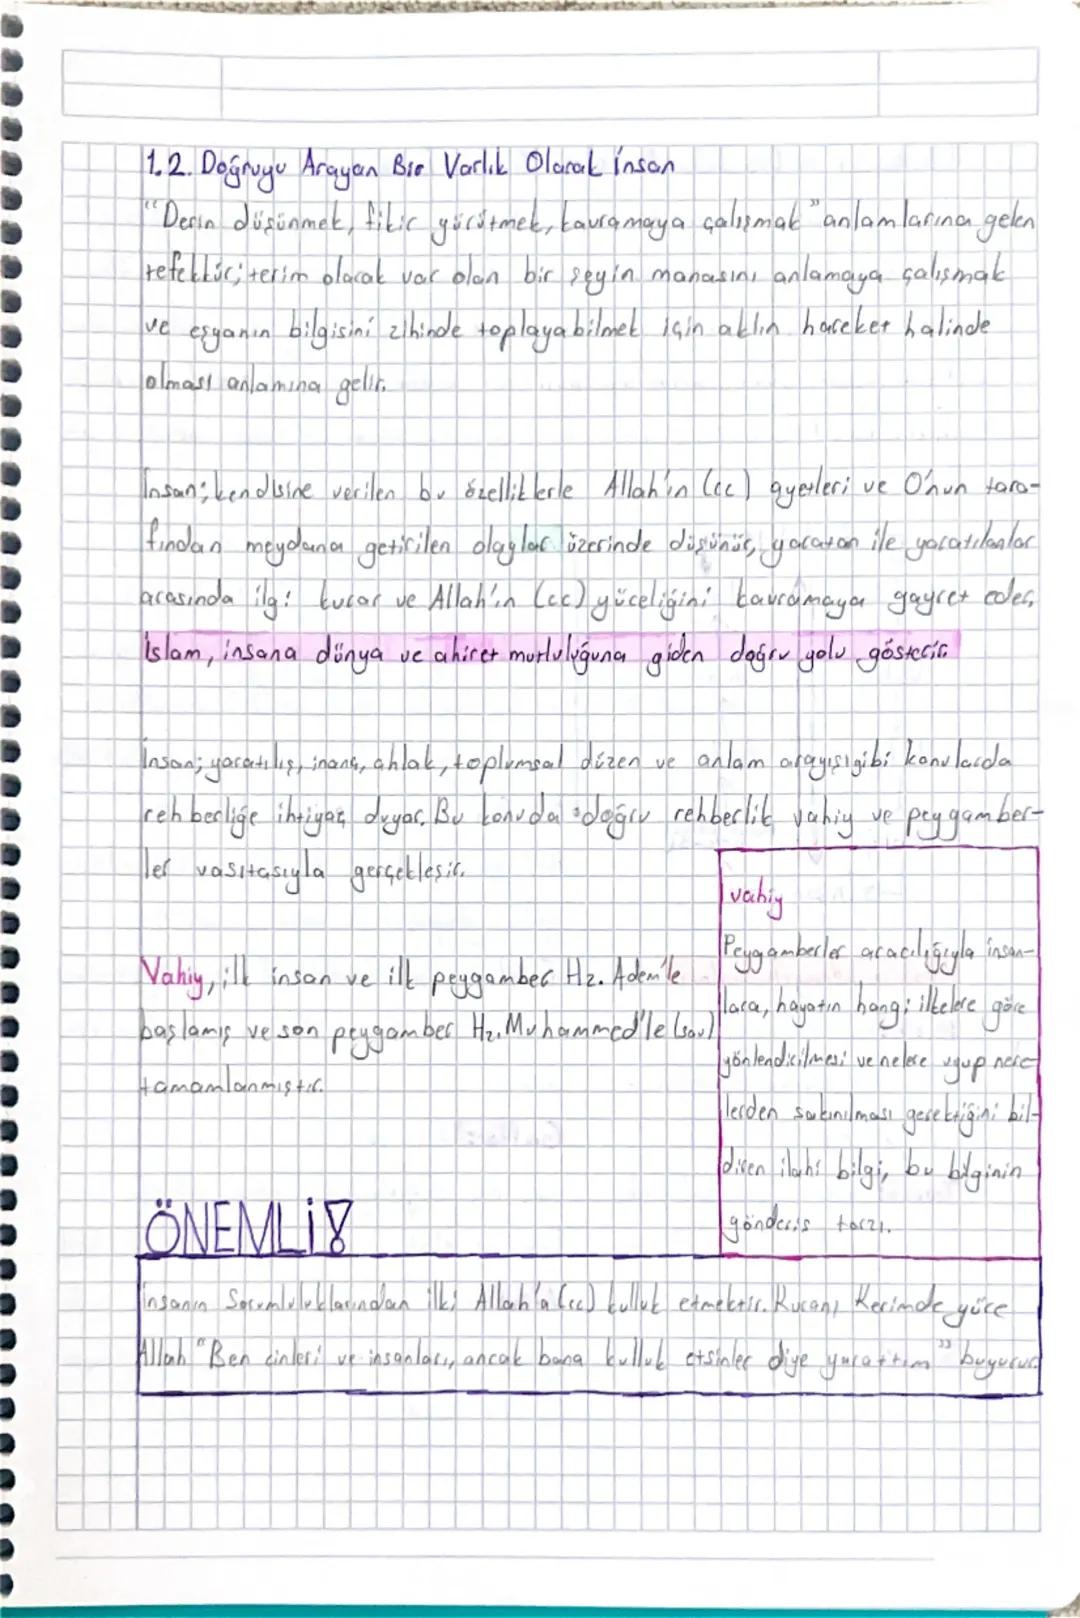 1.2. Doğruyu Arayan Bir Varlık Olarak İnsan
"Derin düşünmek, fikir yürütmek, kavramaya çalışmak" anlamlarına gelen
tefekkür; terim olarak var olan bir şeyin manasını anlamaya çalışmak
ve eşyanın bilgisini zihinde toplayabilmek için aklın hareket halinde
olması anlamına gelir.
İnsan; kendisine verilen bu özelliklerle Allah'ın (cc) ayetleri ve O'nun tara-
fından meydana getirilen olaylar üzerinde düşünür, yaratan ile yaratılanlar
arasında ilgi kurar ve Allah'ın (cc) yüceliğini kavramaya gayret eder,
İslam, insana dünya ve ahiret mutluluğuna giden doğru yolu gösterir.
İnsan; yaratılış, inanç, ahlak, toplumsal düzen ve anlam arayışı gibi konularda
rehberliğe ihtiyaç duyar. Bu konuda doğru rehberlik vahiy ve peygamber-
ler vasıtasıyla gerçekleşir.
Vahiy, ilk insan ve ilk peygamber Hz. Adem'le
başlamış ve son peygamber Hz. Muhammed'le (sav)
tamamlanmıştır.
vahiy
Peygamberler aracılığıyla insan-
lara, hayatın hangi ilkelere göre
yönlendirilmesi ve nelere uyup nere-
lerden sakınılması gerektiğini bil-
diren ilahi bilgi, bu bilginin
gönderiş tarzı.
ÖNEMLİ!
İnsanın Sorumluluklarından ilki Allah'a (cc) kulluk etmektir. Kuranı Kerimde yüce
Allah "Ben cinleri ve insanları, ancak bana kulluk etsinler diye yarattım" buyurur.